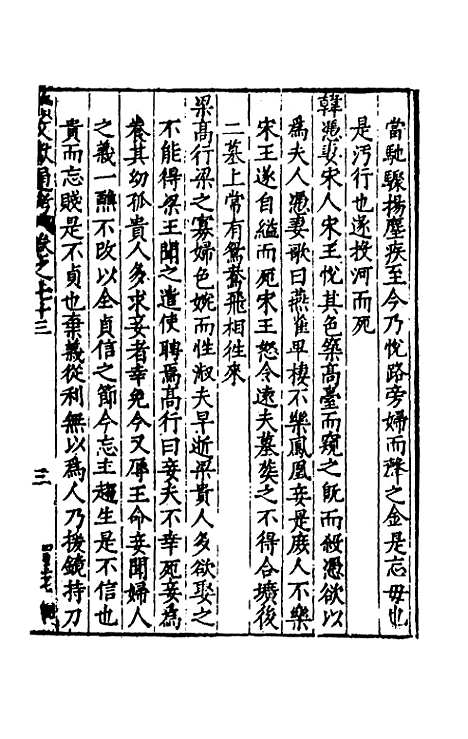 當馳驟揚塵疾至今乃悅路旁婦而降之金是忘母也
是汚行也遂投河而死
韓憑妻宋人宋王悅其色築高臺而窺之旣而殺憑欲以
爲夫人憑妻歌曰燕雀早棲不樂鳳凰妾是庶人不樂
宋王遂自縊而死宋王怒令遠夫墓葬之不得合壙後
二墓上常有鴛鴦飛相徃來
梁高行梁之寡婦色婉而性淑夫早逝梁貴人多欲娶之
不能得梁王聞之遣使聘焉高行曰妾夫不幸死妾爲
養其幼孤貴人多求妾者幸免今又辱王命妾聞婦人
之義一醮不改以全貞信之節今忘主趨生是不信也
貴而忘賤是不貞也棄義從利無以爲人乃援鏡持刀
文獻通考 卷之七十三
三